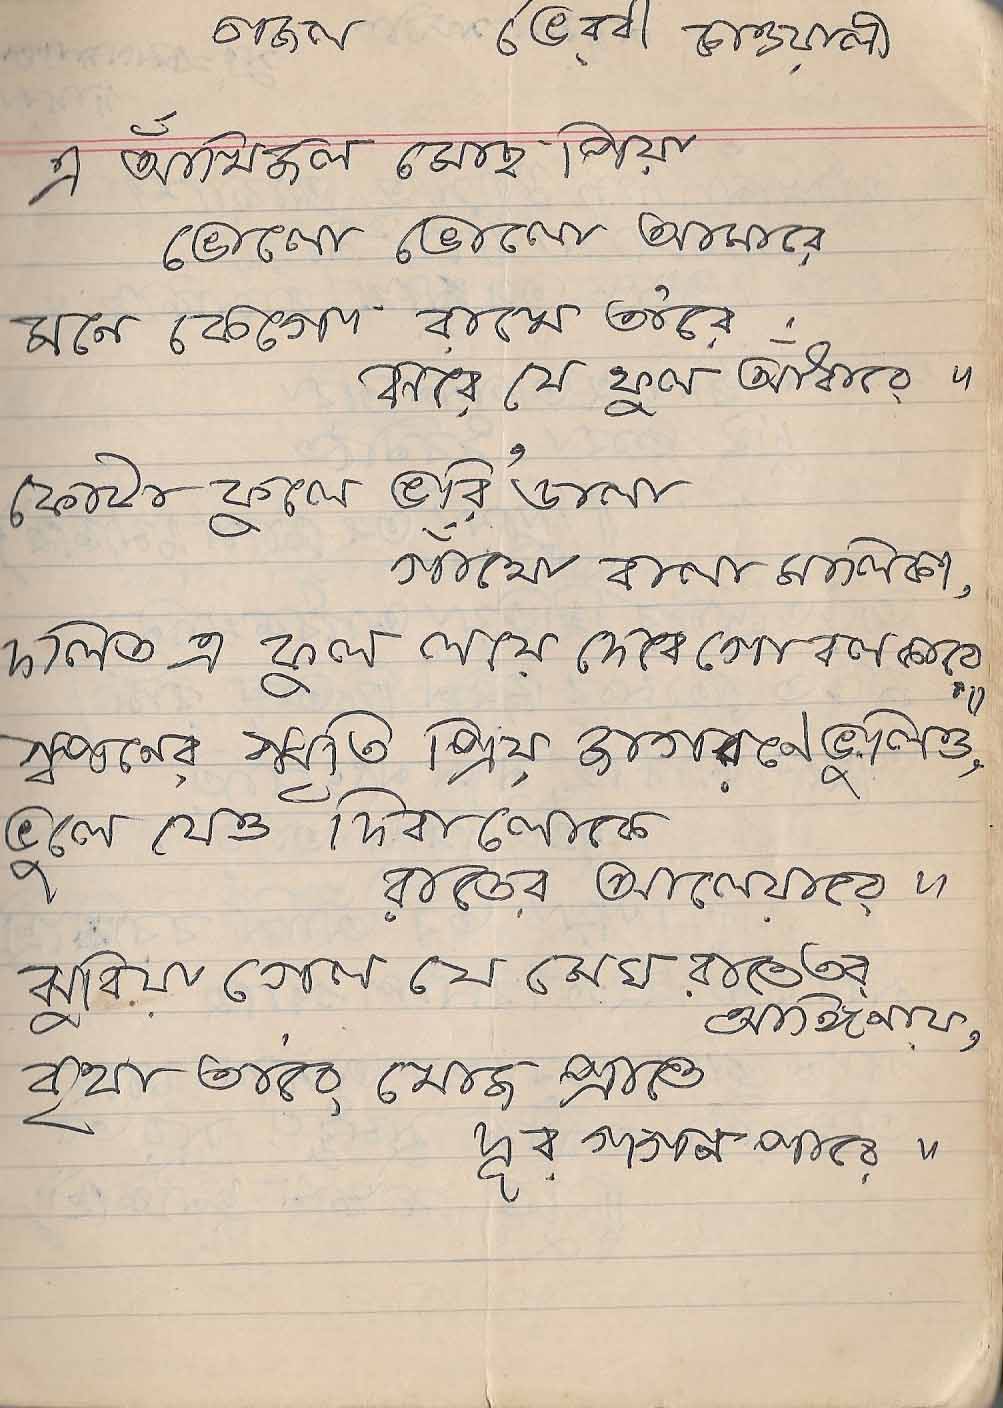 গজল ভৈরবী কাওয়ালী
এ আঁখিজল মোছ পিয়া
ভোলো ভোলো আমারে
মনে কেগো রাখে তা'রে
ঝরে যে ফুল আঁধারে ॥
ফোটা ফুলে ভরি' ডালা
গাঁথো বালা মালিকা,
দলিত এ ফুল লয়ে দেবে গো বল কারে ॥
স্বপনের স্মৃতি প্রিয় জাগরণে ভুলিও,
ভুলে যেও দিবালোকে
রাতের আলেয়ারে ॥
ঝুরিয়া গেল যে মেঘ রাতে তব
আঙিনায়,
বৃথা তা'রে খোঁজ প্রাতে
দূর গগন পারে ॥